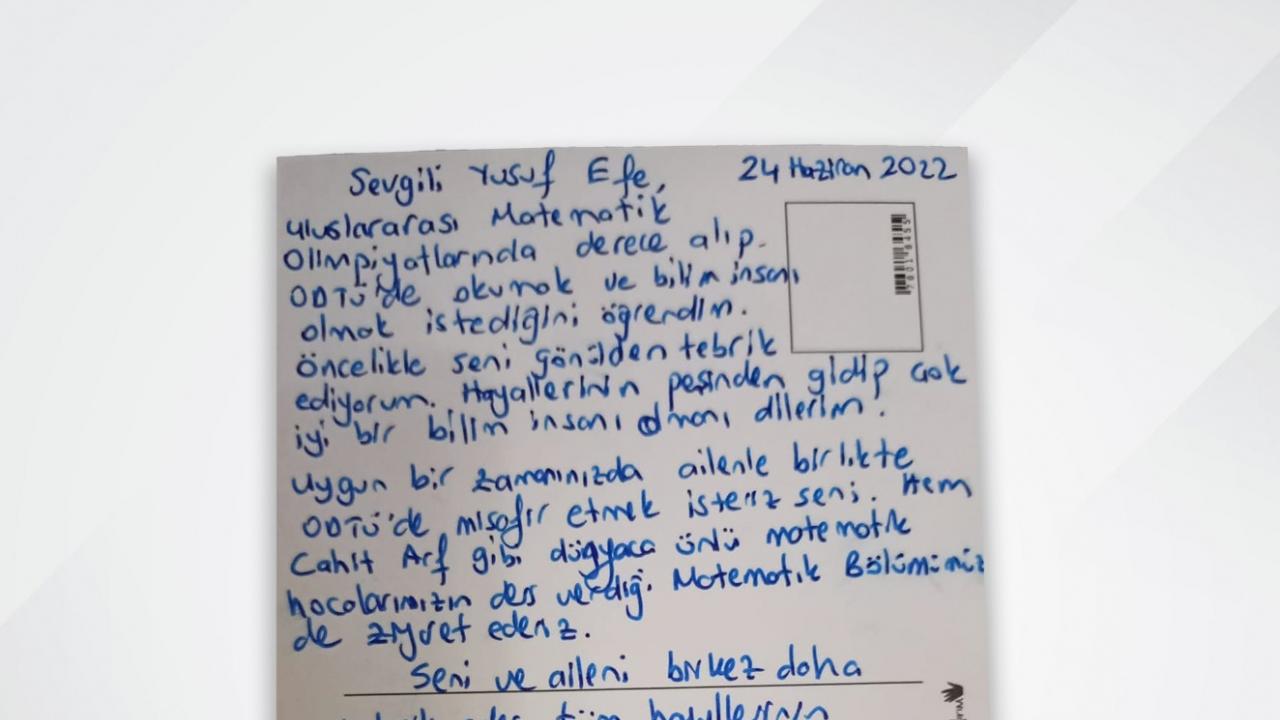 Sevgili Yusuf Efe, 24 Haziran 2022
Uluslararası Matematik
Olimpiyatlarında derece alıp.
ODTÜ'de okumak ve bilim insanı
olmak istediğini öğrendim.
Öncelikle seni gönülden tebrik
ediyorum. Hayallerinin peşinden gidip çok
iyi bir bilim insanı olmanı dilerim!
Uygun bir zamanınızda ailenle birlikte
ODTÜ'de misafir etmek isteriz seni. Hem
Cahit Arf gibi dünyaca ünlü matematik
hocalarımızın ders verdiği Matematik Bölümümüz
de ziyaret ederiz.
Seni ve aileni bir kez daha
tüm hayallerinin